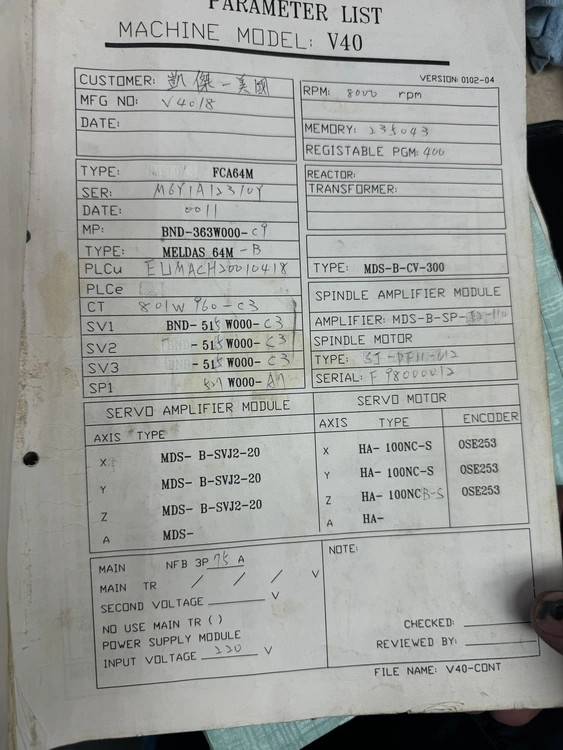 PARAMETER LIST
MACHINE MODEL: V40
VERSION: 0102-04
CUSTOMER: 凱傑-美國
MFG NO: V4018
DATE:
RPM: 8000 rpm
MEMORY: 235043
REGISTABLE PGM: 400
TYPE: FCA64M
SER: M6Y1A12310Y
DATE: 0011
MP: BND-363W000-C9
TYPE: MELDAS 64M-B
PLCu EUMACH20010418
PLCe
CT 801W960-C3
SV1 BND-515W000-C3
SV2 -515W000-C3
SV3 -515W000-C3
SP1 W000-
REACTOR:
TRANSFORMER:
TYPE: MDS-B-CV-300
SPINDLE AMPLIFIER MODULE
AMPLIFIER: MDS-B-SP-
SPINDLE MOTOR
TYPE:
SERIAL: F98000012
SERVO AMPLIFIER MODULE
AXIS TYPE
X MDS- B-SVJ2-20
Y MDS- B-SVJ2-20
Z MDS- B-SVJ2-20
A MDS-
SERVO MOTOR
AXIS TYPE ENCODER
X HA- 100NC-S OSE253
Y HA- 100NC-S OSE253
Z HA- 100NCB-S OSE253
A HA-
MAIN NFB 3P 75 A
MAIN TR / / / V
SECOND VOLTAGE V
NO USE MAIN TR ( )
POWER SUPPLY MODULE
INPUT VOLTAGE 220 V
NOTE:
CHECKED:
REVIEWED BY:
FILE NAME: V40-CONT